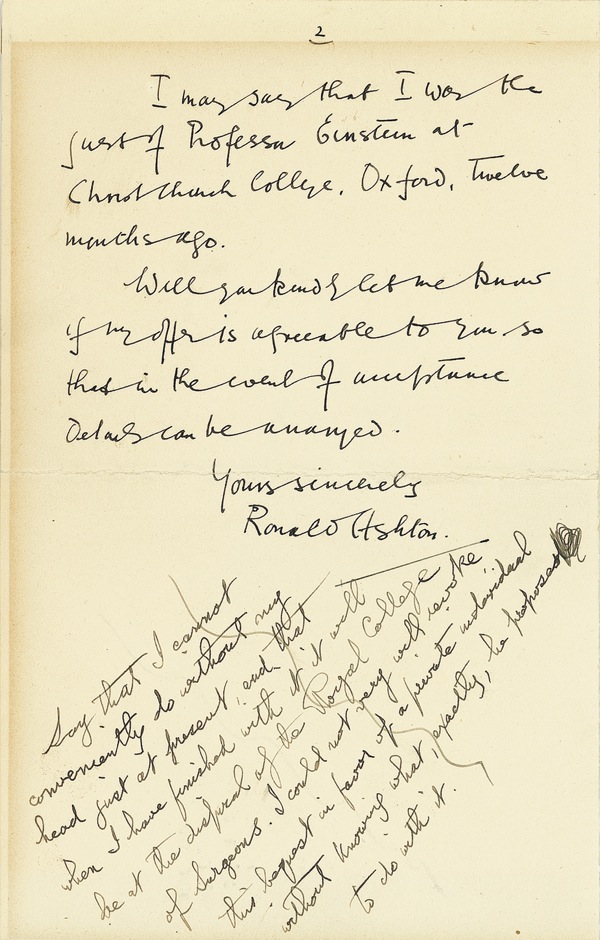 2
I may say that I was the
guest of Professor Einstein at
Christ Church College, Oxford, Twelve
months ago.
Will you kindly let me know
if my offer is agreeable to you so
that in the event of acceptance
Details can be arranged.
Yours sincerely
Ronald Ashton.
Say that I cannot
conveniently do without my
head just at present, and that
when I have finished with it it will
be at the disposal of the Royal College
of Surgeons. I could not very well revoke
this bequest in favor of a private individual
without knowing what, exactly, he proposes
to do with it.